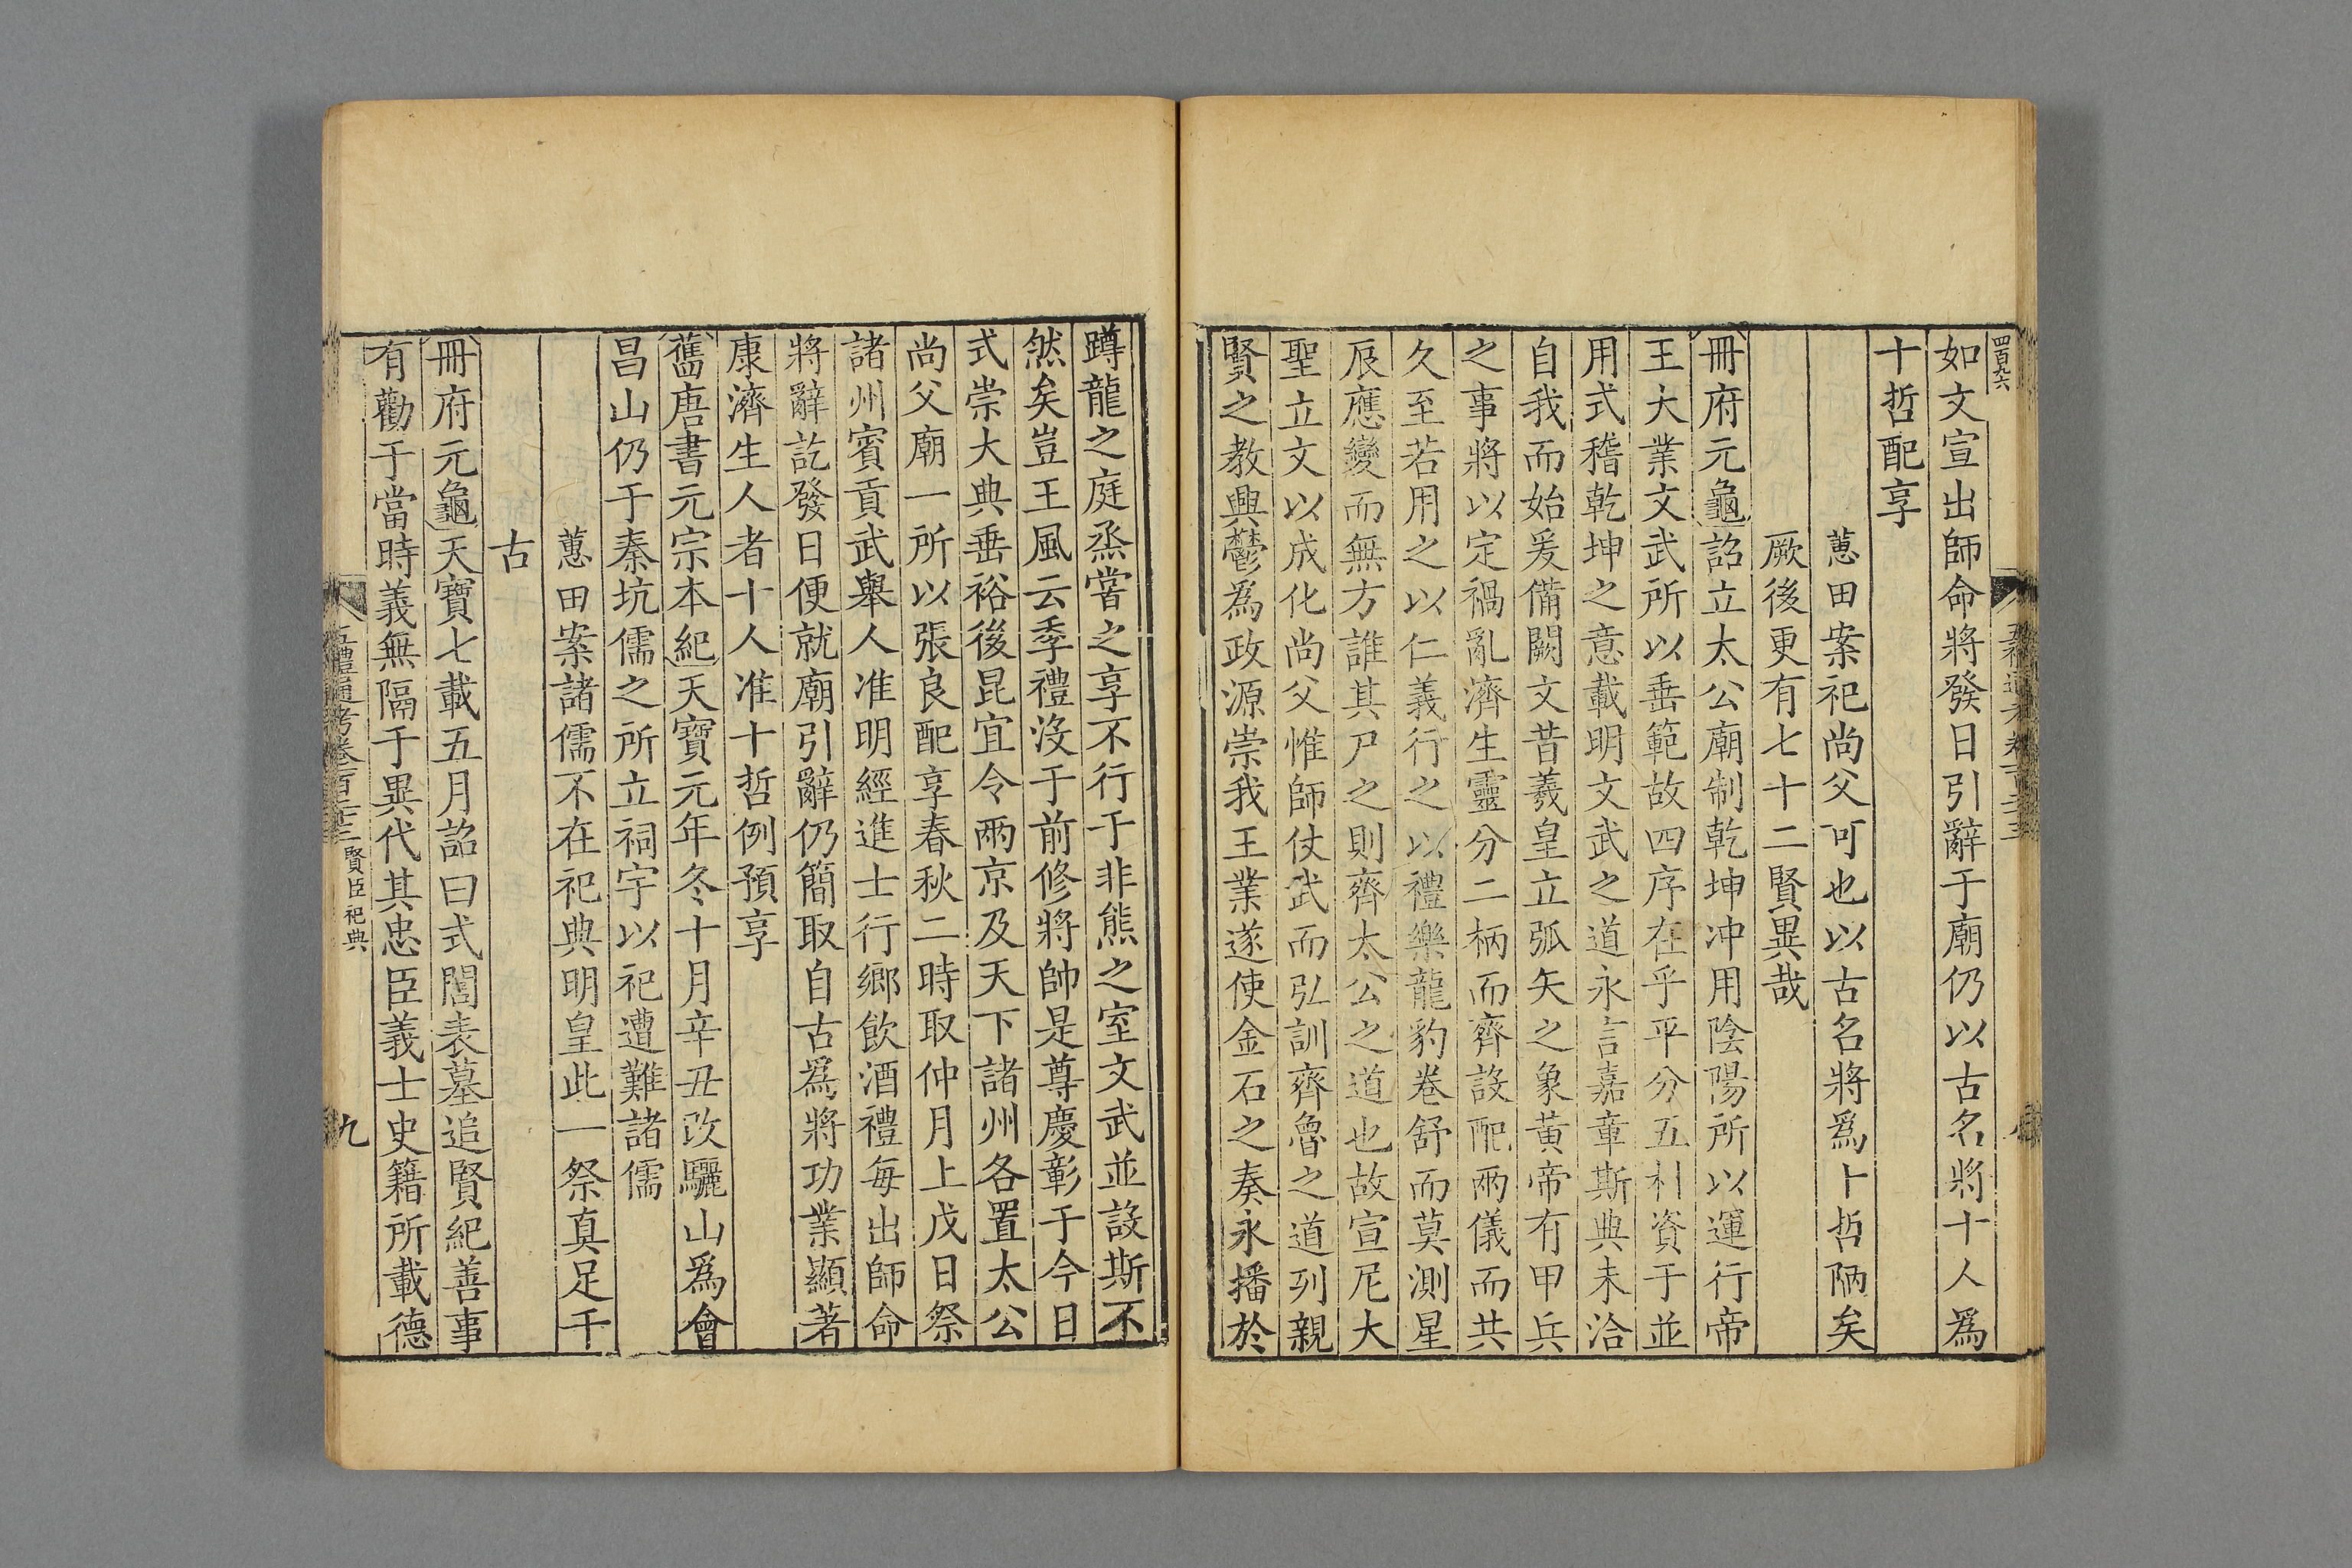 四百九六
如文宣出師命將發日引辭于廟仍以古名將十人爲
十哲配享
蕙田案祀尚父可也以古名將爲十哲陋矣
厥後更有七十二賢異哉
冊府元龜詔立太公廟制乾坤冲用陰陽所以運行帝
王大業文武所以垂範故四序在乎平分五材資于並
用式稽乾坤之意載明文武之道永言嘉章斯典未洽
自我而始爰備闕文昔羲皇立弧矢之象黃帝有甲兵
之事將以定禍亂濟生靈分二柄而齊設配兩儀而共
久至若用之以仁義行之以禮樂龍豹卷舒而莫測星
辰應變而無方誰其尸之則齊太公之道也故宣尼大
聖立文以成化尚父惟師仗武而弘訓齊魯之道列親
賢之教興鬱爲政源崇我王業遂使金石之奏永播於
蹲龍之庭烝嘗之享不行于非熊之室文武並設斯不
然矣豈王風云季禮沒于前修將帥是尊慶彰于今日
式崇大典垂裕後昆宜令兩京及天下諸州各置太公
尚父廟一所以張良配享春秋二時取仲月上戊日祭
諸州賓貢武舉人准明經進士行鄉飲酒禮每出師命
將辭訖發日便就廟引辭仍簡取自古爲將功業顯著
康濟生人者十人准十哲例預享
舊唐書元宗本紀天寶元年冬十月辛丑改驪山爲會
昌山仍于秦坑儒之所立祠宇以祀遭難諸儒
蕙田案諸儒不在祀典明皇此一祭真足千
古
冊府元龜天寶七載五月詔曰式閭表墓追賢紀善事
有勸于當時義無隔于異代其忠臣義士史籍所載德
五禮通考卷一百二十三 賢臣祀典
九